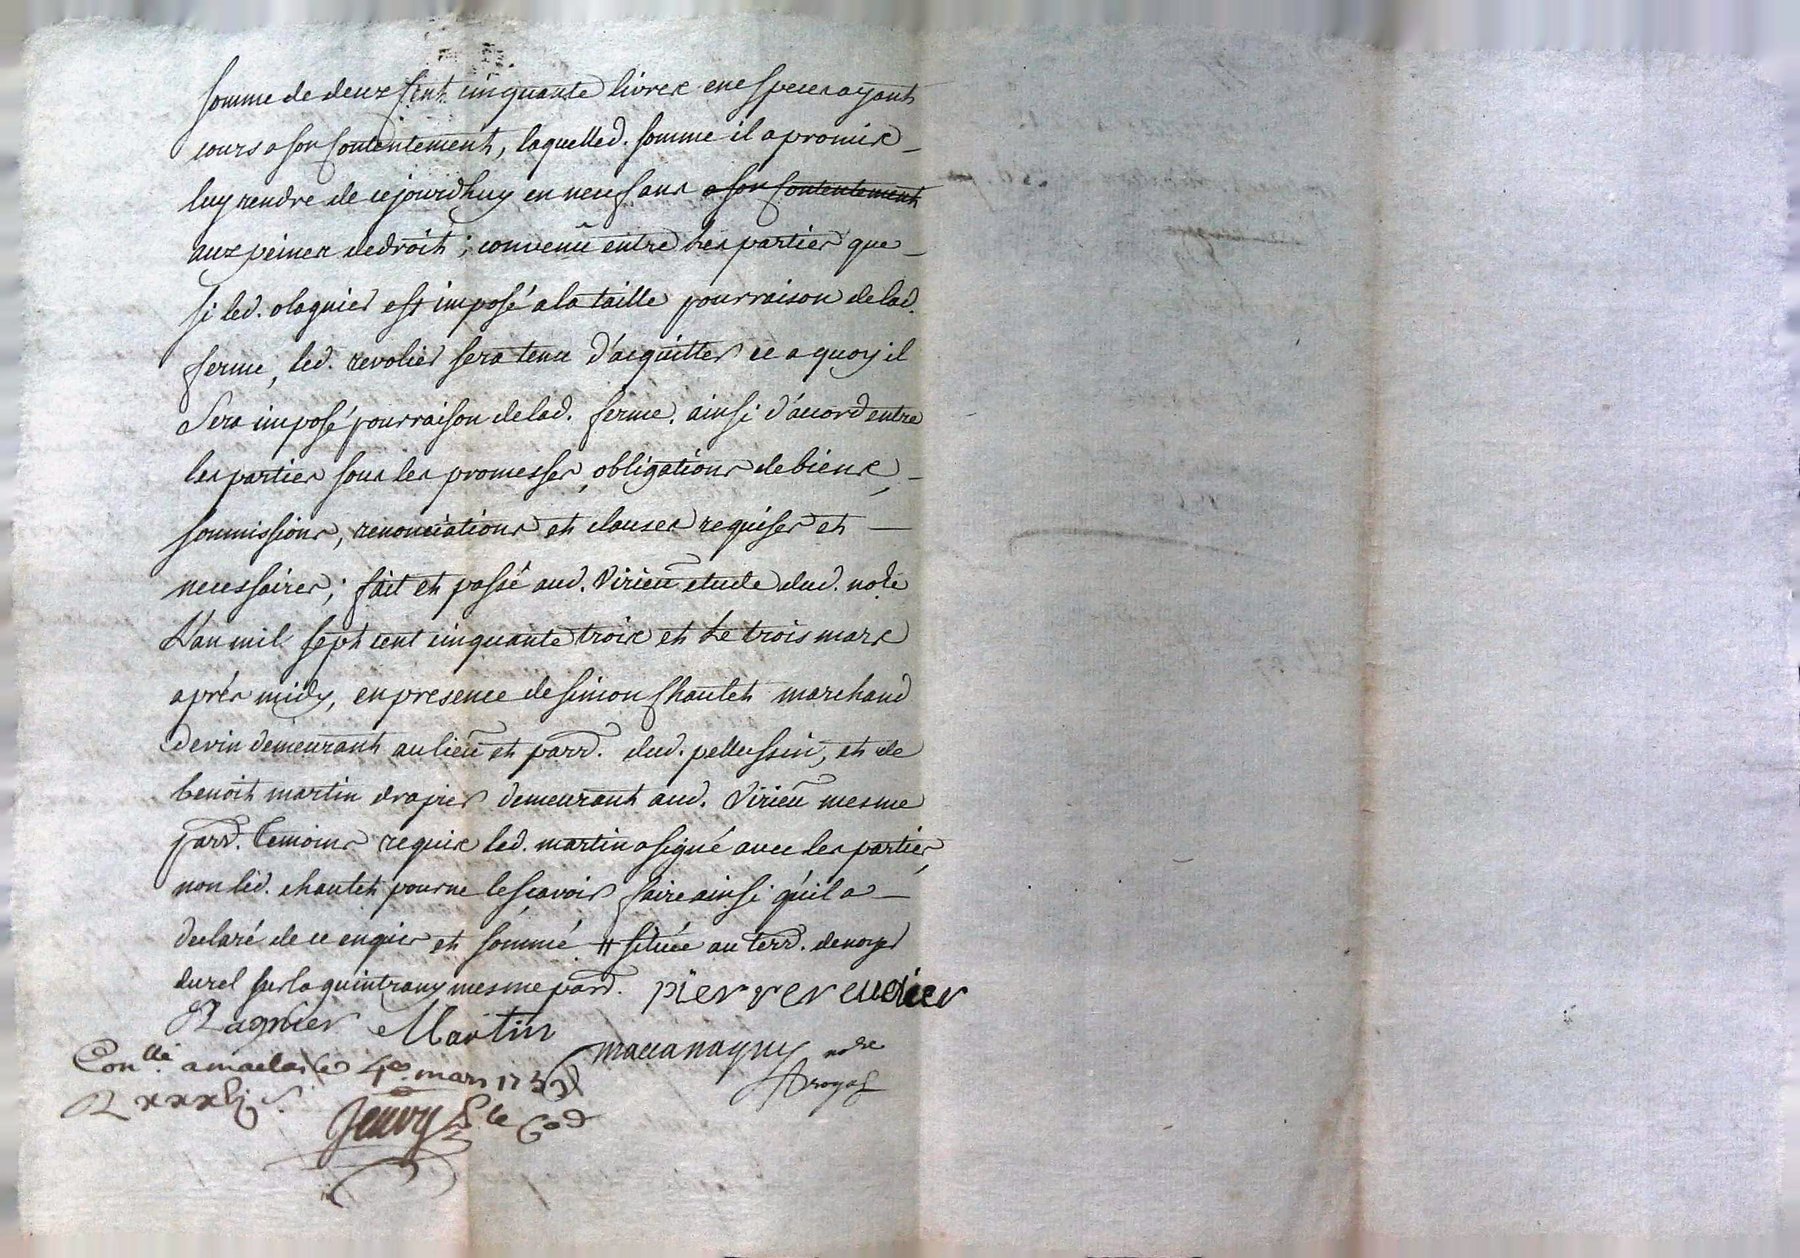 somme de deux sent cinquante livres en especes ayant
cours a son contentement, laquelled. somme il a promis
luy rendre de cejourdhuy en neuf ans a son contentement
aux peines de droit; convenû entre les parties que
si led. olagnier est imposé a la taille pour raison de lad.
ferme, led. revolier sera tenu d'acquitter ce a quoy il
sera imposé pour raison de lad. ferme. ainsi d'accord entre
les parties sous les promesses, obligations de biens,
soumissions, renonciations et clauses requises et
necessaires; fait et passé aud. Virieû etude dud. nore
L'an mil sept cent cinquante trois et Le trois mars
après midy, en presence de simon chautet marchand
de vin demeurant au lieû et parr. dud. pellussin, et de
benoit martin drapier demeurant aud. Virieû mesme
parr. temoins requis led. martin a signé avec les parties,
non led. chautet pour ne le scavoir faire ainsi qu'il a
declaré de ce enquis et sommé # située au terr. de noyer
durel sur la quintrany mesme parr. pierre
Martin
nore
royal
Conllé a maclas le 4e mars 1753